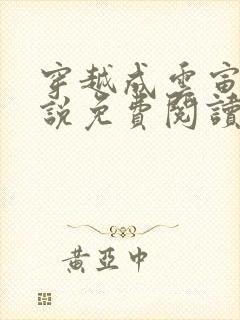 穿越成雲宙
說免費閱讀
黃亞中